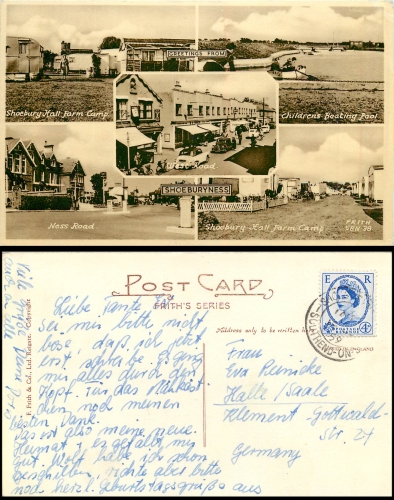 GREETINGS FROM
Shoebury Hall Farm Camp.
Childrens Boating Pool
West Road
SHOEBURYNESS
Ness Road
Shoebury Hall Farm Camp
FRITH
SBN 38
POST CARD
FRITH'S SERIES
Address only to be written here
F. Frith & Co., Ltd., Reigate. Copyright
Liebe Tante
Sei mir bitte nicht
böse, daß ich jetzt
erst schreibe. Es ging
mir alles durch den
Kopf. Für das
meinen
besten Dank.
Das ist also meine neue
Heimat, es gefällt mir
gut. Wolf habe ich schon
geschrieben, richte aber bitte
noch herzl. Geburtstagsgrüße aus
Viele Grüße
Frau
Eva Reinicke
Halle/Saale
Klement Gottwald-
Str. 21
Germany
E R
POSTAGE
4D
SOUTHEND-ON-S